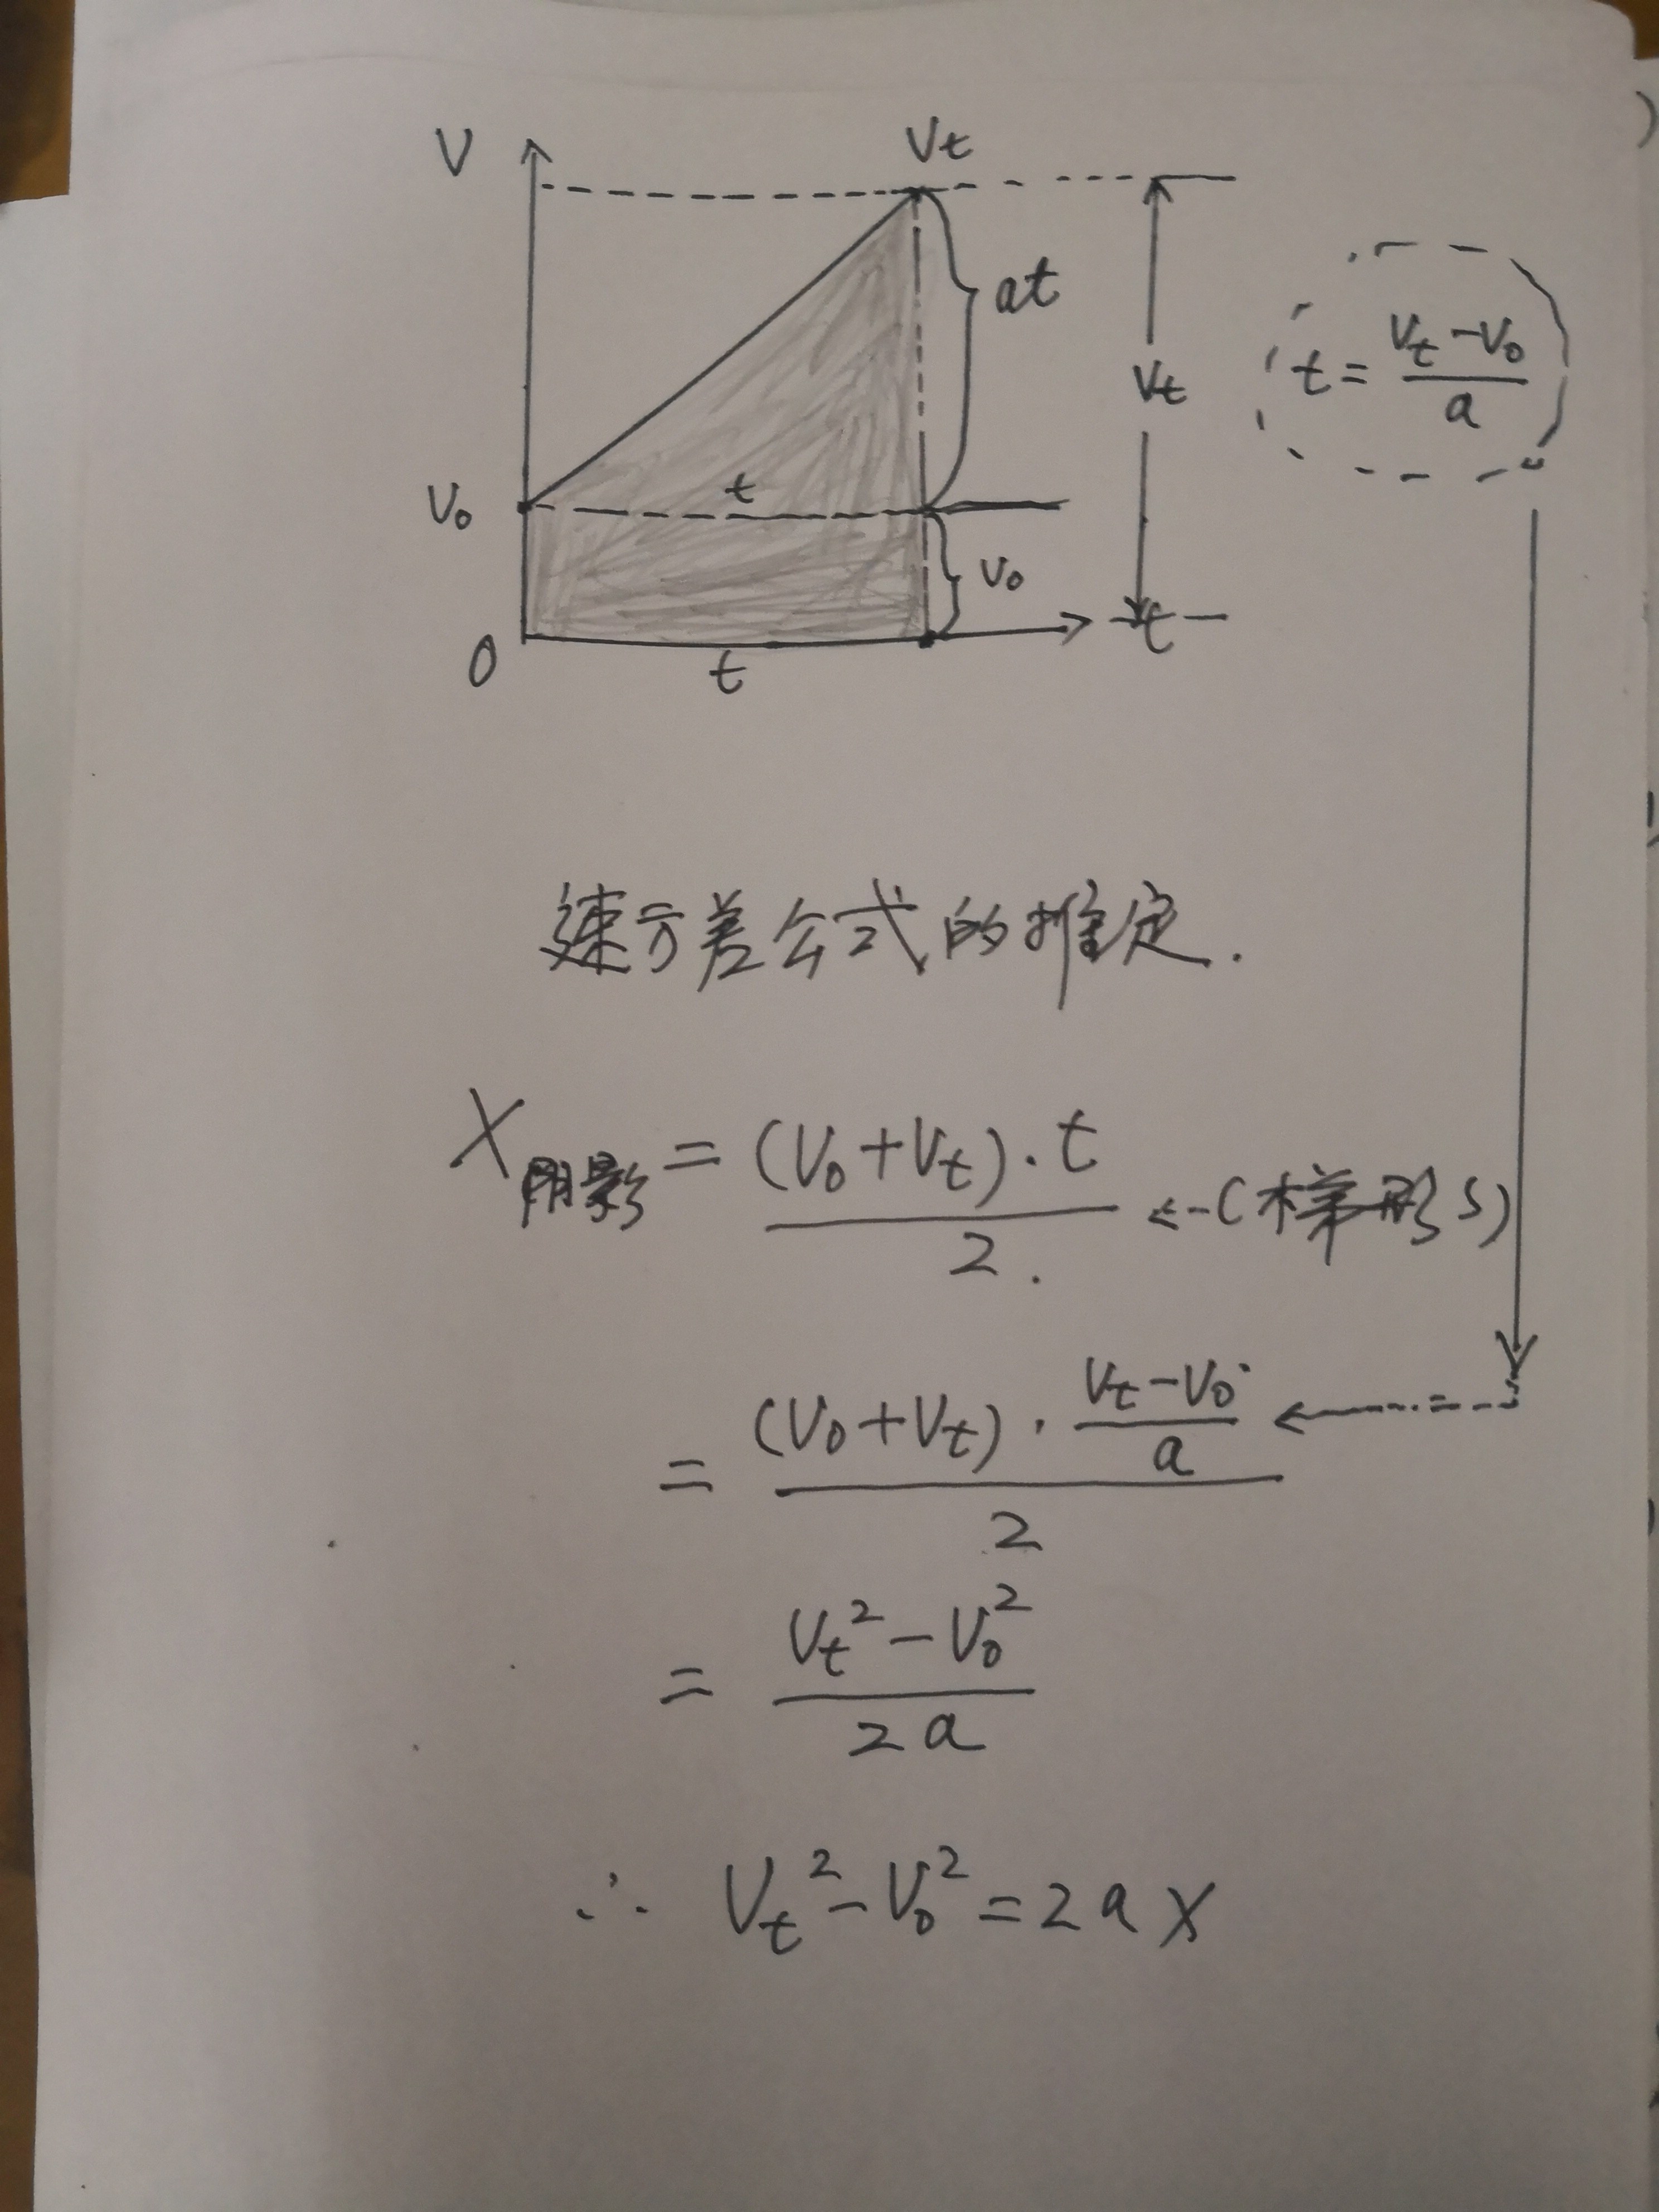 V
Vt
at
Vt
t = (Vt - V₀)/a
V₀
t
V₀
0
t
t
速方差公式的推定.
X阴影 = (V₀+Vt)·t / 2. ←(梯形S)
= (V₀+Vt)·(Vt-V₀)/a / 2
= (Vt²-V₀²) / 2a
∴ Vt²-V₀²=2aX